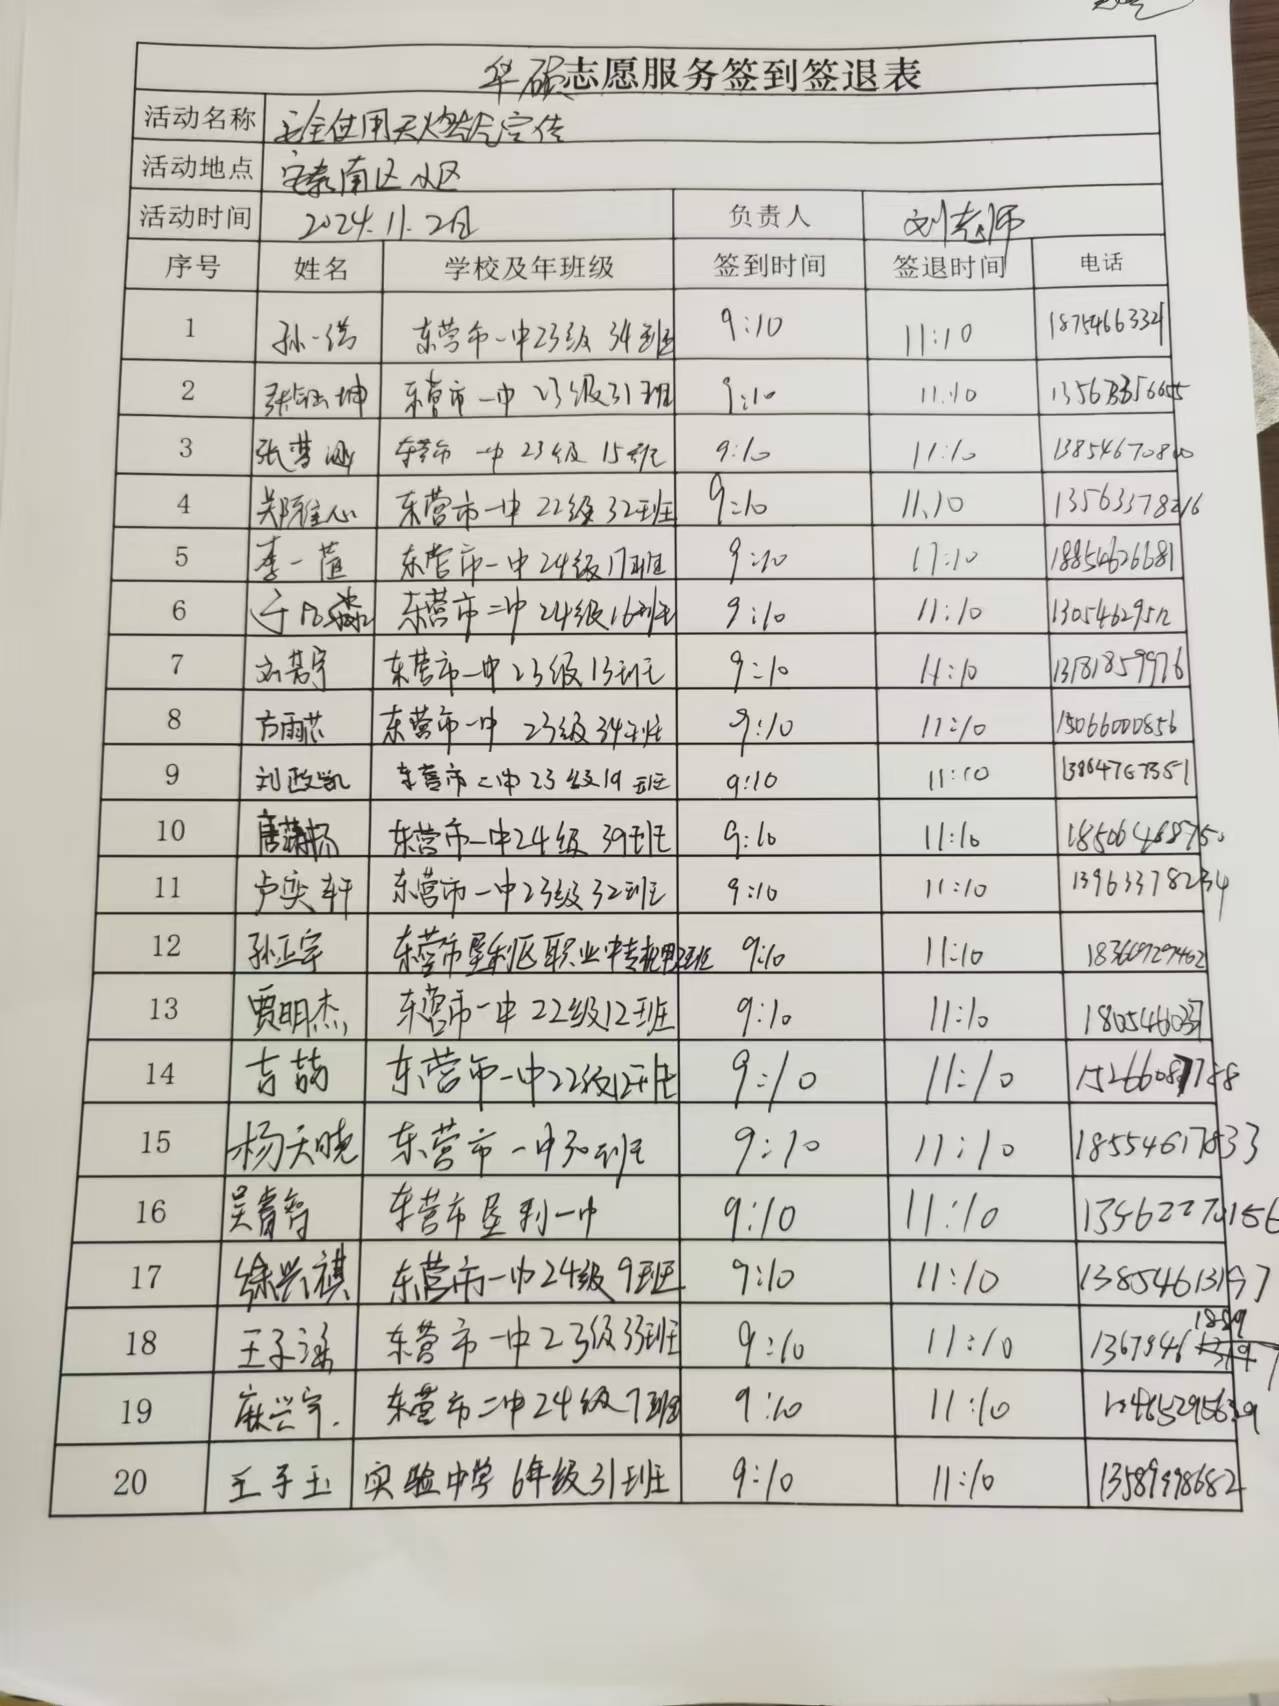 华硕志愿服务签到签退表
活动名称 安全使用天燃气宣传
活动地点 安泰南区小区
活动时间 2024.11.2日 负责人 刘老师
序号 姓名 学校及年班级 签到时间 签退时间 电话
1 孙一诺 东营市一中23级34班 9:10 11:10 18754663321
2 张钰坤 东营市一中23级31班 9:10 11:10
3 张梦 东营市一中23级15班 9:10 11:10
4 郑雅心 东营市一中22级32班 9:10 11:10 13563378216
5 李一萱 东营市一中24级17班 9:10 11:10 18854626681
6 于 东营市二中24级16班 9:10 11:10
7 刘芳宇 东营市一中23级13班 9:10 11:10 13181859976
8 方雨芯 东营市一中23级34班 9:10 11:10 15066000856
9 刘政凯 东营市二中23级19班 9:10 11:10
10 唐 东营市一中24级39班 9:10 11:10
11 卢奕轩 东营市一中23级32班 9:10 11:10 13963378234
12 孙正宇 东营市垦利区职业中专 9:10 11:10
13 贾明杰 东营市一中22级12班 9:10 11:10
14 吉喆 东营市一中22级12班 9:10 11:10
15 杨天晓 东营市一中30班 9:10 11:10 18554617833
16 吴青 东营市垦利一中 9:10 11:10
17 徐兴祺 东营市一中24级9班 9:10 11:10 13854613197
18 王子涵 东营市一中23级33班 9:10 11:10
19 麻兴宇. 东营市二中24级7班 9:10 11:10
20 王子玉 实验中学6年级31班 9:10 11:10 13589998682